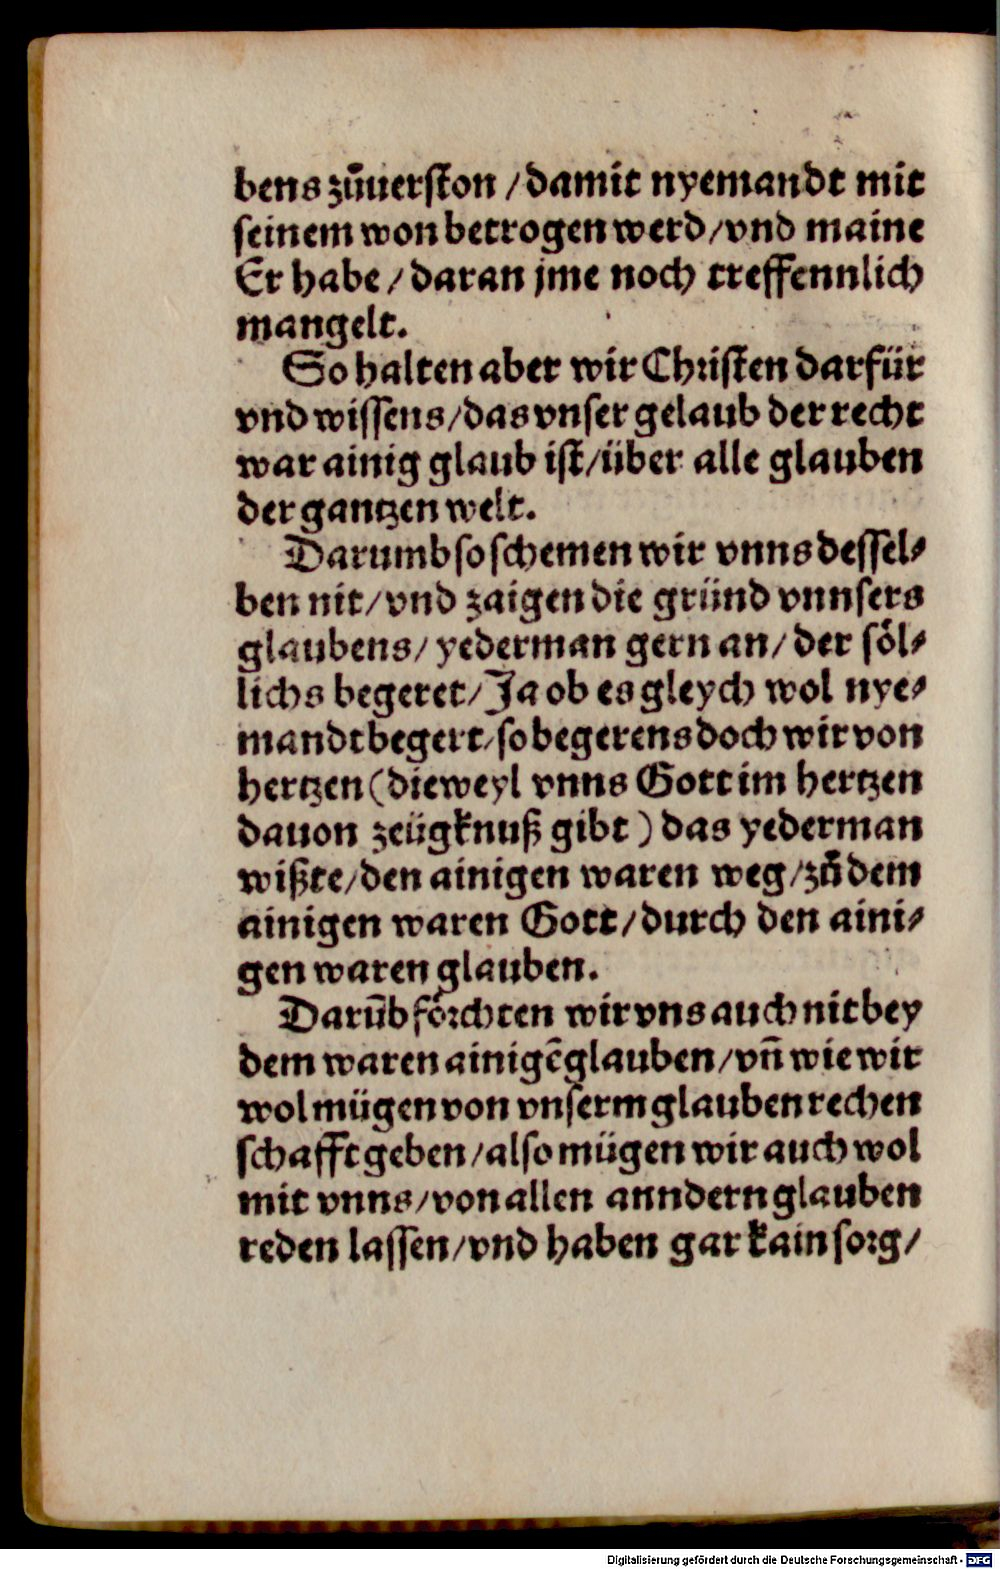 bens zůuerston / damit nyemandt mit
seinem won betrogen werd / vnd maine
Er habe / daran jme noch treffennlich
mangelt.
So halten aber wir Christen darfür
vnd wissens / das vnser gelaub der recht
war ainig glaub ist / über alle glauben
der gantzen welt.
Darumb so schemen wir vnns dessel⸗
ben nit / vnd zaigen die gründ vnnsers
glaubens / yederman gern an / der söl⸗
lichs begeret / Ja ob es gleych wol nye⸗
mandt begert / so begerens doch wir von
hertzen (dieweyl vnns Gott im hertzen
dauon zeügknuß gibt) das yederman
wißte / den ainigen waren weg / zů dem
ainigen waren Gott / durch den aini⸗
gen waren glauben.
Darūb förchten wir vns auch nit bey
dem waren ainigē glauben / vñ wie wir
wol mügen von vnserm glauben rechen
schafft geben / also mügen wir auch wol
mit vnns / von allen anndern glauben
reden lassen / vnd haben gar kain sorg /
Digitalisierung gefördert durch die Deutsche Forschungsgemeinschaft - DFG